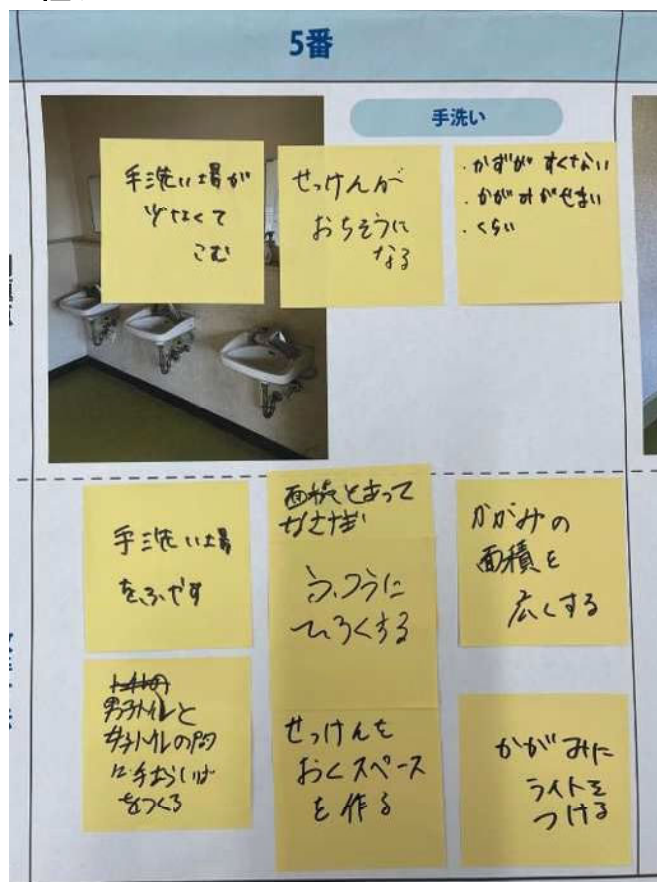 5番
手洗い
手洗い場が
少なくて
こむ
せっけんが
おちそうに
なる
・かずが すくない
・かがみがせまい
・くらい
手洗い場
をふやす
面積とあって
ふつうに
ひろくする
かがみの
面積を
広くする
男子トイレと
女子トイレの間
に手あらいば
をつくる
せっけんを
おくスペース
を作る
かがみに
ライトを
つける